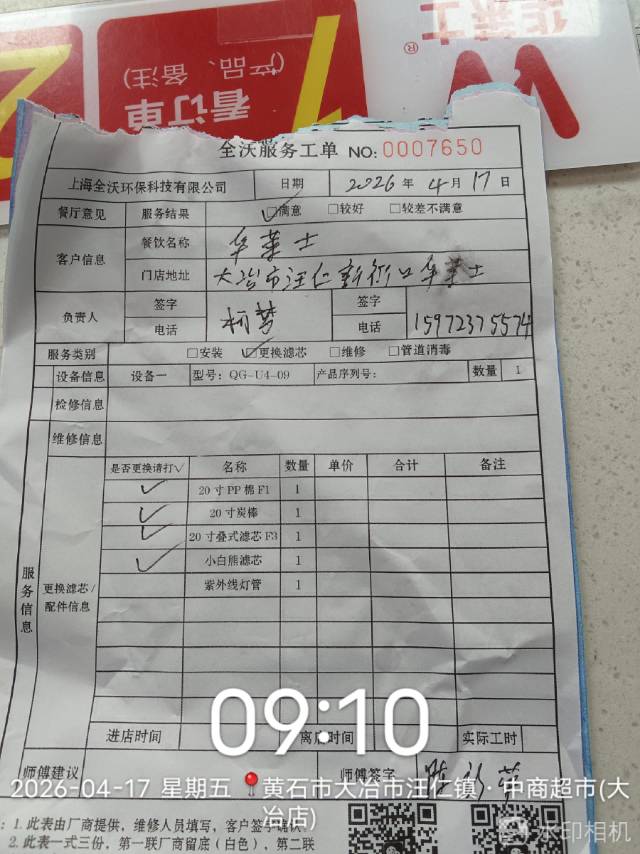 看订单
(产品、备注)
华莱士
®
全沃服务工单 NO:0007650
上海全沃环保科技有限公司 日期 2026 年 4 月 17 日
餐厅意见 服务结果 ☑满意 □较好 □较差不满意
客户信息 餐饮名称 华莱士
门店地址 大冶市汪仁新街口华莱士
负责人 签字 柯梦 签字
电话 电话 15972375574
服务类别 □安装 ☑更换滤芯 □维修 □管道消毒
设备信息 设备一 型号: QG-U4-09 产品序列号: 数量 1
检修信息
维修信息
服务信息
更换滤芯/配件信息
是否更换请打√ 名称 数量 单价 合计 备注
✓ 20寸PP棉F1 1
✓ 20寸炭棒 1
✓ 20寸叠式滤芯F3 1
✓ 小白熊滤芯 1
紫外线灯管 1
进店时间 离店时间 实际工时
09:10
师傅建议 师傅签字
2026-04-17 星期五 黄石市大冶市汪仁镇·中商超市(大冶店)
: 1. 此表由厂商提供，维修人员填写，客户签字确认.
2. 此表一式三份，第一联厂商留底（白色），第二联
水印相机